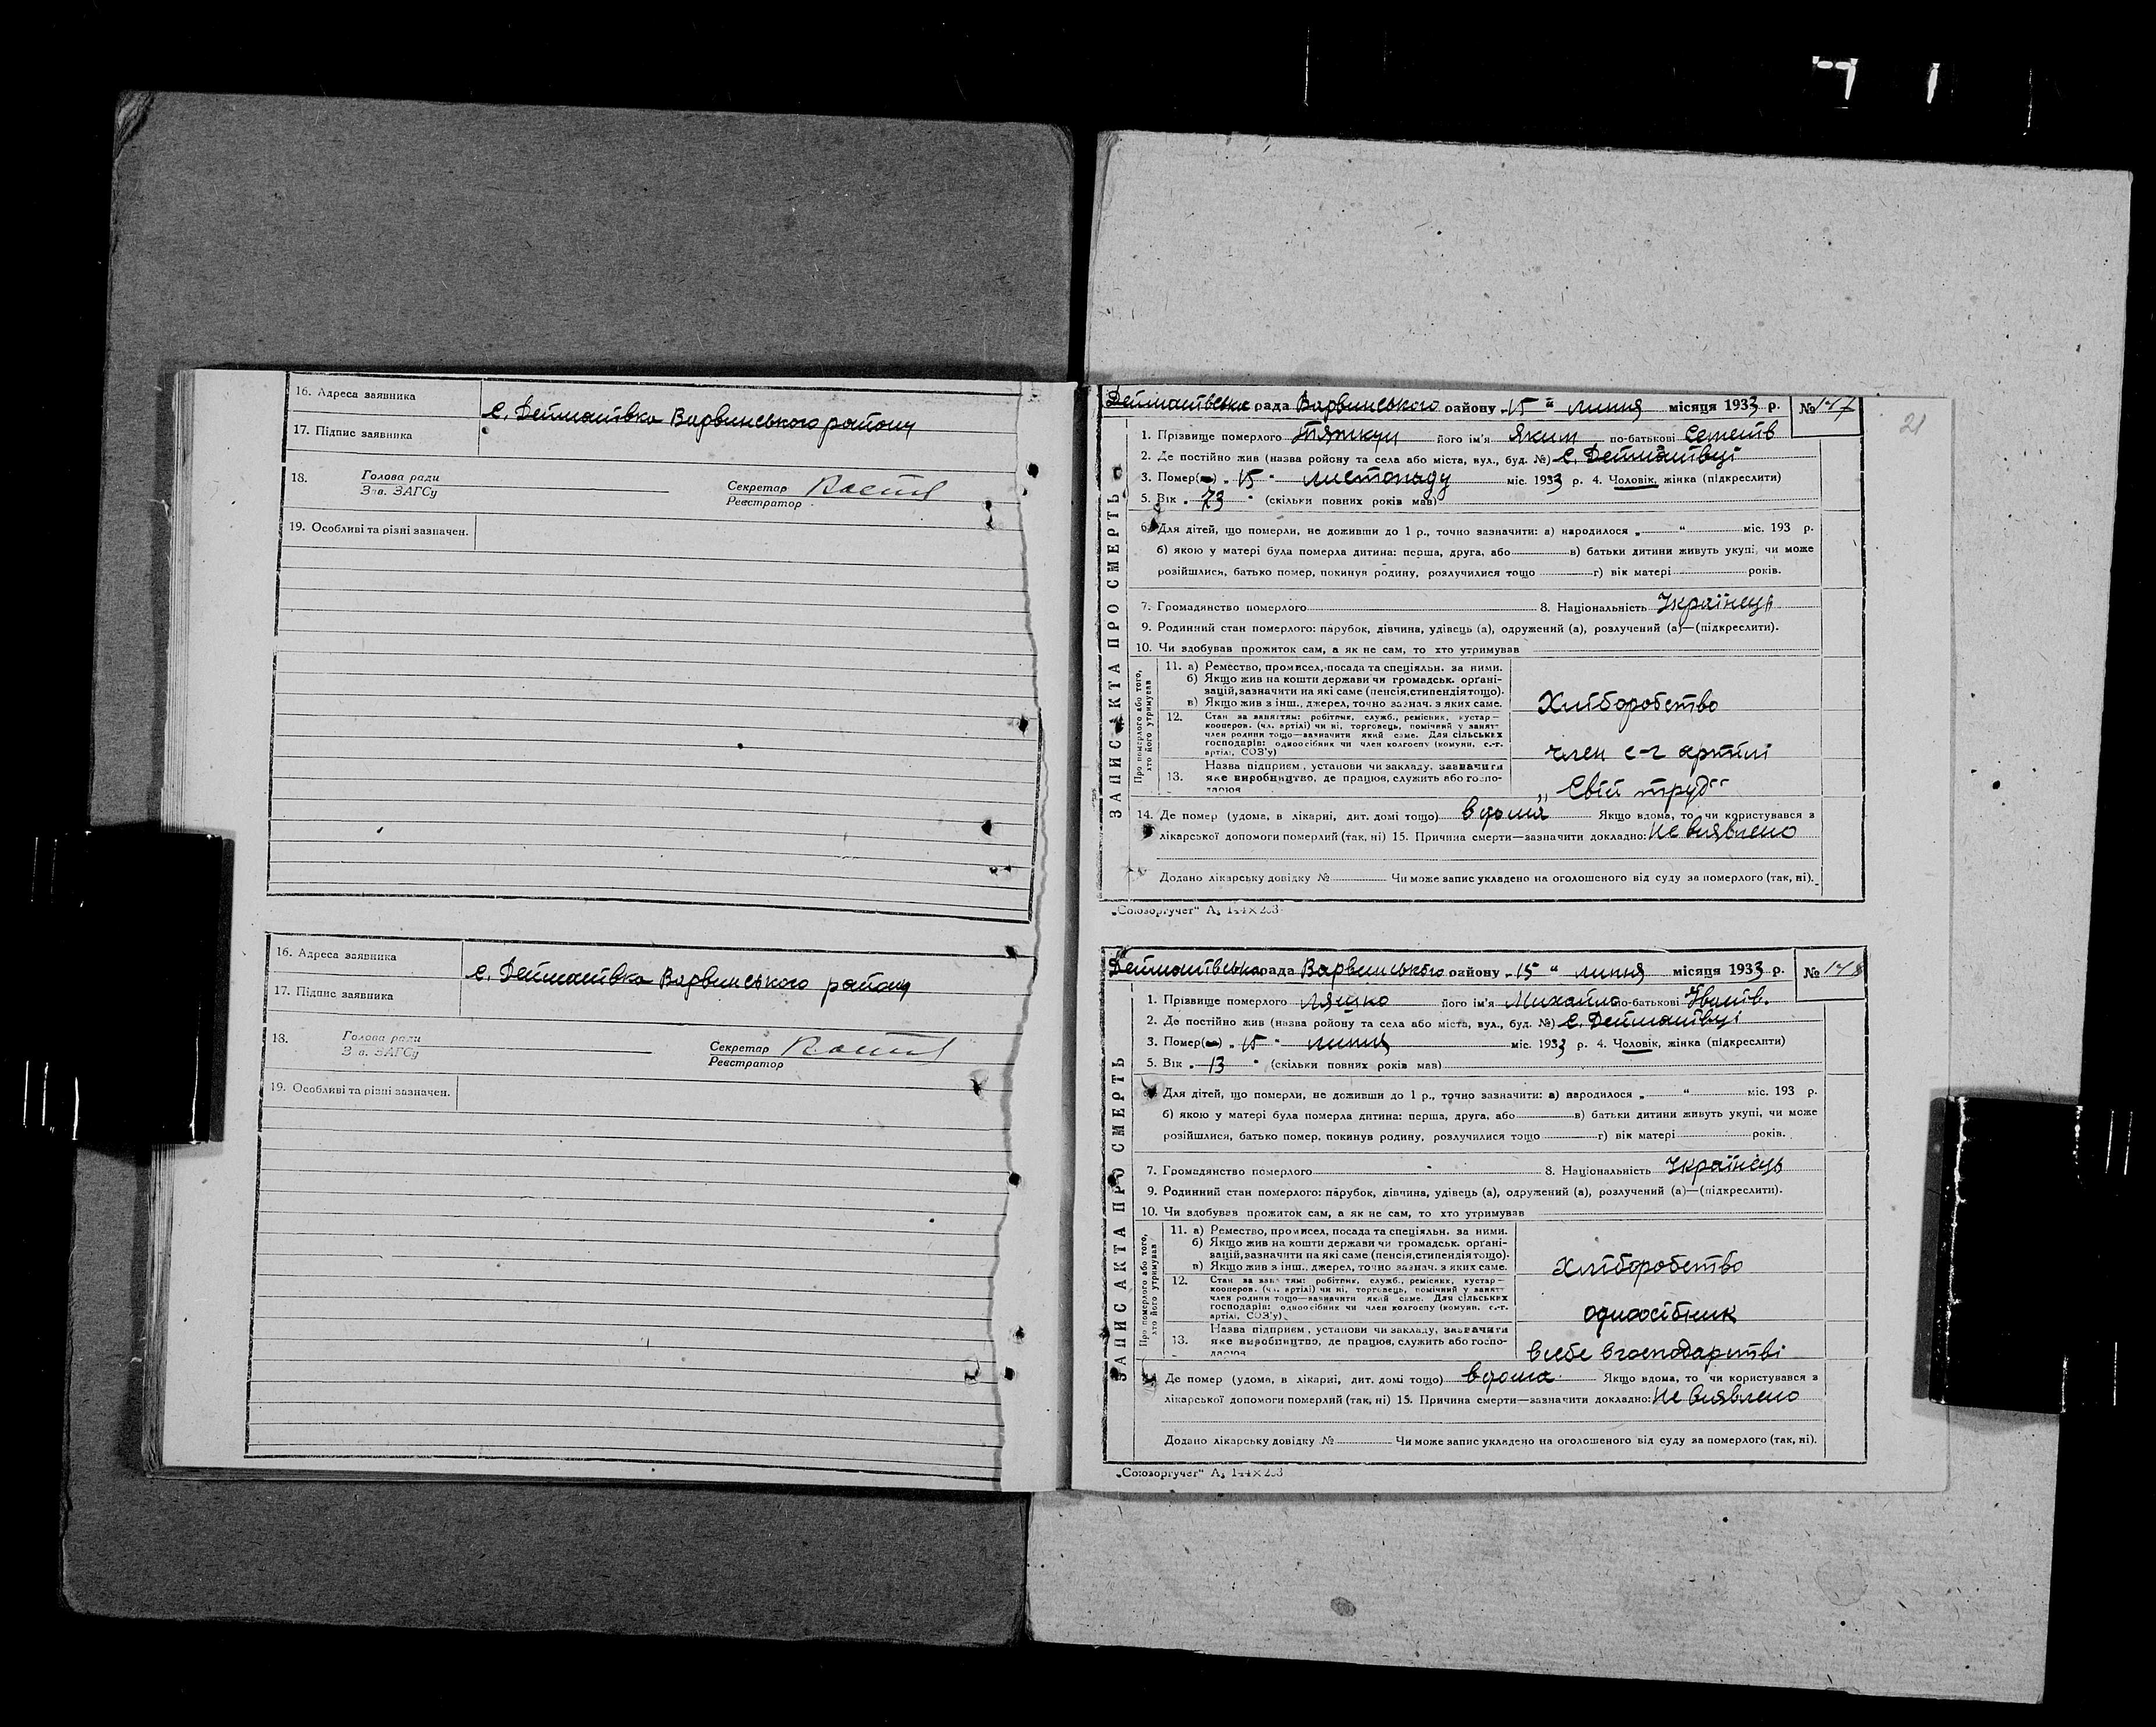 16. Адреса заявника
с. Дейманівка Варвинського району
17. Підпис заявника
18. Голова ради
Зав. ЗАГСу
Секретар
Реєстратор
19. Особливі та різні зазначен.
16. Адреса заявника
с. Дейманівка Варвинського району
17. Підпис заявника
18. Голова ради
Зав. ЗАГСу
Секретар
Реєстратор
19. Особливі та різні зазначен.
21
Дейманівська рада Варвинського району „15“ липня місяця 1933 р. № 147
ЗАПИС АКТА ПРО СМЕРТЬ
1. Прізвище померлого його ім'я Яким по-батькові Семенів
2. Де постійно жив (назва району та села або міста, вул., буд. №) с. Дейманівці
3. Помер(ла) „15“ листопаду міс. 1933 р. 4. Чоловік, жінка (підкреслити)
5. Вік „73“ (скільки повних років мав)
6. Для дітей, що померли, не доживши до 1 р., точно зазначити: а) народилося „ “ міс. 193 р.
б) якою у матері була померла дитина: перша, друга, або в) батьки дитини живуть укупі, чи може
розійшлися, батько помер, покинув родину, розлучилися тощо г) вік матері років.
7. Громадянство померлого 8. Національність Українець
9. Родинний стан померлого: парубок, дівчина, удівець (а), одружений (а), розлучений (а)—(підкреслити).
10. Чи здобував прожиток сам, а як не сам, то хто утримував
Про померлого або того,
хто його утримував
11. а) Ремество, промисел, посада та спеціяльн. за ними.
б) Якщо жив на кошти держави чи громадськ. орґані-
зацій, зазначити на які саме (пенсія, стипендія тощо).
в) Якщо жив з інш., джерел, точно зазнач. з яких саме.
Хліборобство
12. Стан за заняттям: робітник, служб., ремісник, кустар—
кооперов. (чл. артілі) чи ні, торговець, помічний у занятт
член родини тощо—зазначити який саме. Для сільських
господарів: одноосібник чи член колгоспу (комуни, с.-г.
артілі, СОЗ'у)
член с-г артілі
13. Назва підприєм., установи чи закладу, зазначити
яке виробництво, де працюв, служить або госпо-
дарюв
„Свій труд“
14. Де помер (удома, в лікарні, дит. домі тощо) вдома Якщо вдома, то чи користувався з
лікарської допомоги померлий (так, ні) 15. Причина смерти—зазначити докладно: Не виявлено
Додано лікарську довідку № Чи може запис укладено на оголошеного від суду за померлого (так, ні).
„Союзоргучет“ А₅ 144×203
Дейманівська рада Варвинського району „15“ липня місяця 1933 р. № 148
ЗАПИС АКТА ПРО СМЕРТЬ
1. Прізвище померлого Ляшко його ім'я Михайло по-батькові Іванів.
2. Де постійно жив (назва району та села або міста, вул., буд. №) с. Дейманівці
3. Помер(ла) „15“ липня міс. 1933 р. 4. Чоловік, жінка (підкреслити)
5. Вік „13“ (скільки повних років мав)
Для дітей, що померли, не доживши до 1 р., точно зазначити: а) народилося „ “ міс. 193 р.
б) якою у матері була померла дитина: перша, друга, або в) батьки дитини живуть укупі, чи може
розійшлися, батько помер, покинув родину, розлучилися тощо г) вік матері років.
7. Громадянство померлого 8. Національність Українець
9. Родинний стан померлого: парубок, дівчина, удівець (а), одружений (а), розлучений (а)—(підкреслити).
10. Чи здобував прожиток сам, а як не сам, то хто утримував
Про померлого або того,
хто його утримував
11. а) Ремество, промисел, посада та спеціяльн. за ними.
б) Якщо жив на кошти держави чи громадськ. орґані-
зацій, зазначити на які саме (пенсія, стипендія тощо).
в) Якщо жив з інш., джерел, точно зазнач. з яких саме.
Хліборобство
12. Стан за заняттям: робітник, служб., ремісник, кустар—
кооперов. (чл. артілі) чи ні, торговець, помічний у занятт
член родини тощо—зазначити який саме. Для сільських
господарів: одноосібник чи член колгоспу (комуни, с.-г.
артілі, СОЗ'у)
одноосібник
13. Назва підприєм., установи чи закладу, зазначити
яке виробництво, де працюв, служить або госпо-
дарюв
в себе в господарстві
Де помер (удома, в лікарні, дит. домі тощо) вдома Якщо вдома, то чи користувався з
лікарської допомоги померлий (так, ні) 15. Причина смерти—зазначити докладно: Не виявлено
Додано лікарську довідку № Чи може запис укладено на оголошеного від суду за померлого (так, ні).
„Союзоргучет“ А₅ 144×203